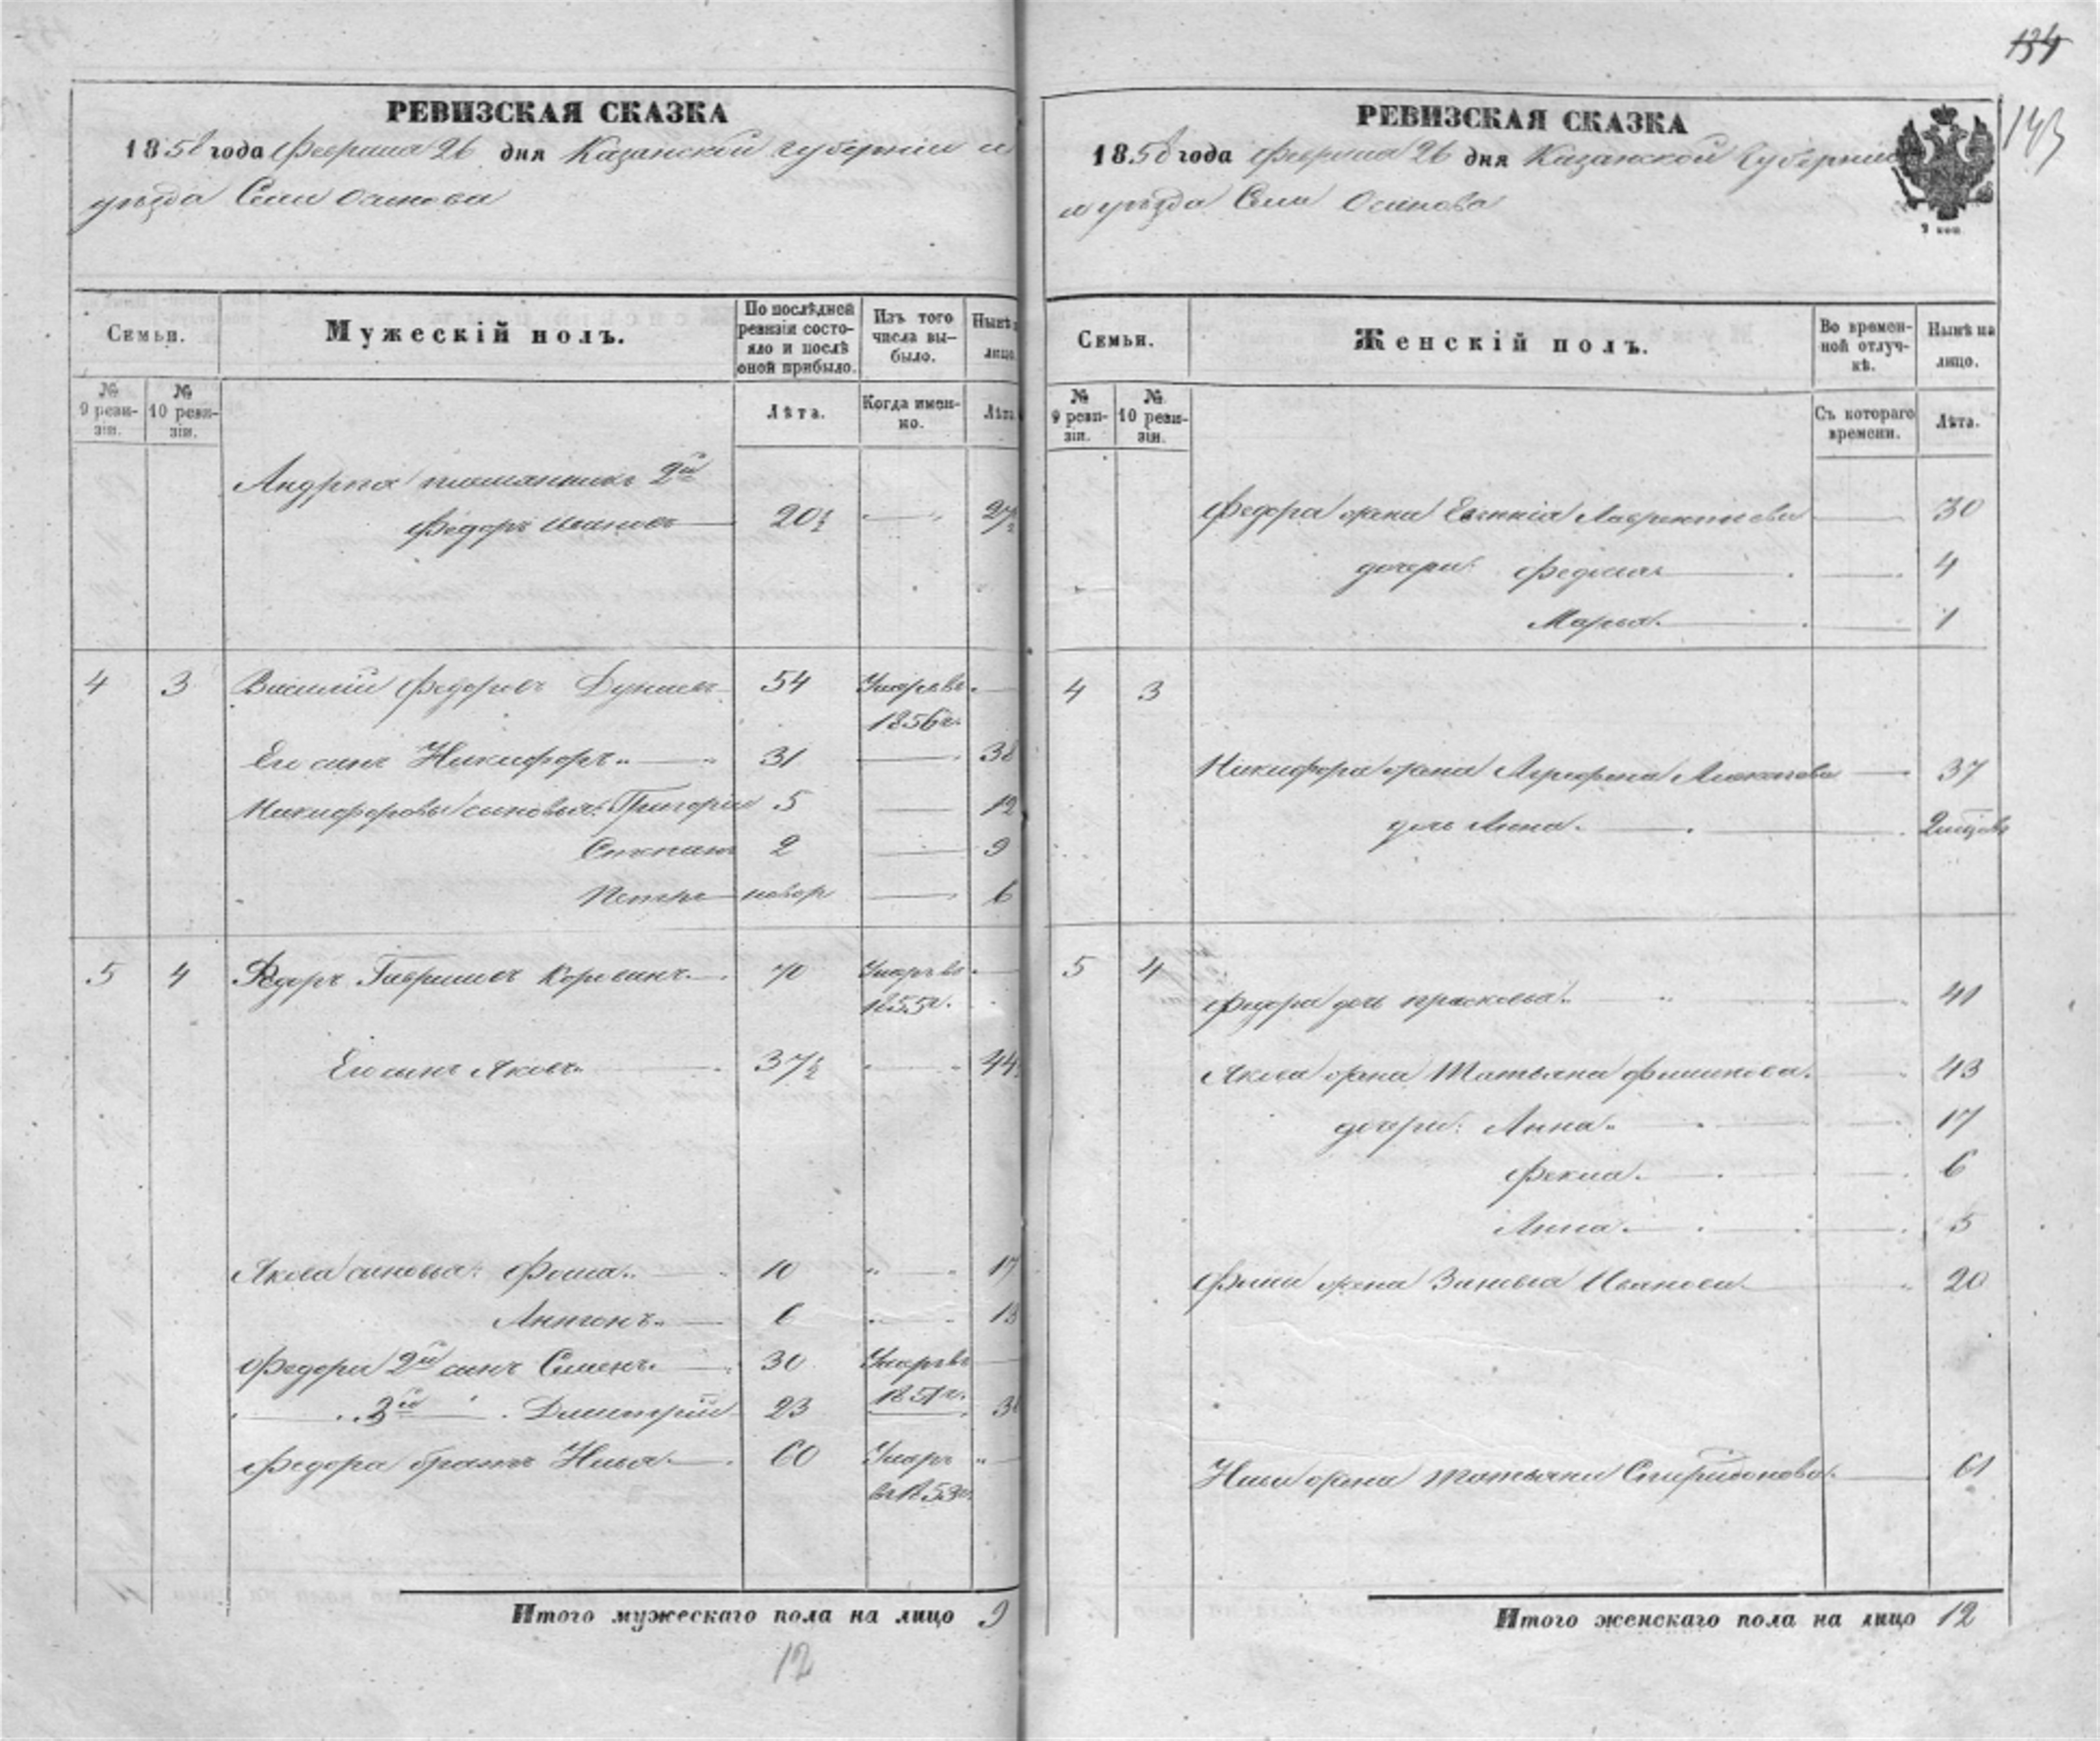 134
143
РЕВИЗСКАЯ СКАЗКА
1858 года Февраля 26 дня Казанской губернии и
уезда Села Осинова
Семьи.
Мужескій полъ.
По послѣдней ревизіи состояло и послѣ оной прибыло.
Изъ того числа выбыло.
Нынѣ
лицо.
№ 9 ревизіи.
№ 10 ревизіи.
Лѣта.
Когда именно.
Лѣта
Андрея племянникъ 2й
Федоръ Ивановъ 20½ 27½
4 3 Василий Федоровъ 54 Умеръ въ
1856 г.
Его сынъ Никифоръ 31 38
Никифоровы сыновья: Григорий 5 12
Степанъ 2 9
Петръ новор 6
5 4 Федоръ Гавриловъ 70 Умеръ въ
1855 г.
Его сынъ Яковъ 37½ 44
Якова сыновья: Фома 10 17
Антонъ 6 13
Федора 2й сынъ Семенъ 30 Умеръ въ
1851 г.
3й Дмитрий 23 30
Федора братъ Илья 60 Умеръ
въ 1853 г.
Итого мужескаго пола на лицо 9
12
РЕВИЗСКАЯ СКАЗКА
1858 года Февраля 26 дня Казанской Губернии
и уезда Села Осинова
2 коп.
Семьи.
Женскій полъ.
Во временной отлучкѣ.
Нынѣ на лицо.
№ 9 ревизіи.
№ 10 ревизіи.
Съ котораго времени.
Лѣта.
Федора жена Евгения Лаврентьева 30
дочери: Федосья 4
Марья 1
4 3
Никифора жена Агрофена 37
дочь Анна 2 месяцев
5 4
Федора дочь Прасковья 41
Якова жена Татьяна Филипова 43
дочери: Анна 17
Фекла 6
Анна 5
Фомы жена Зиновья Иванова 20
Ильи жена Татьяна Спиридонова 61
Итого женскаго пола на лицо 12